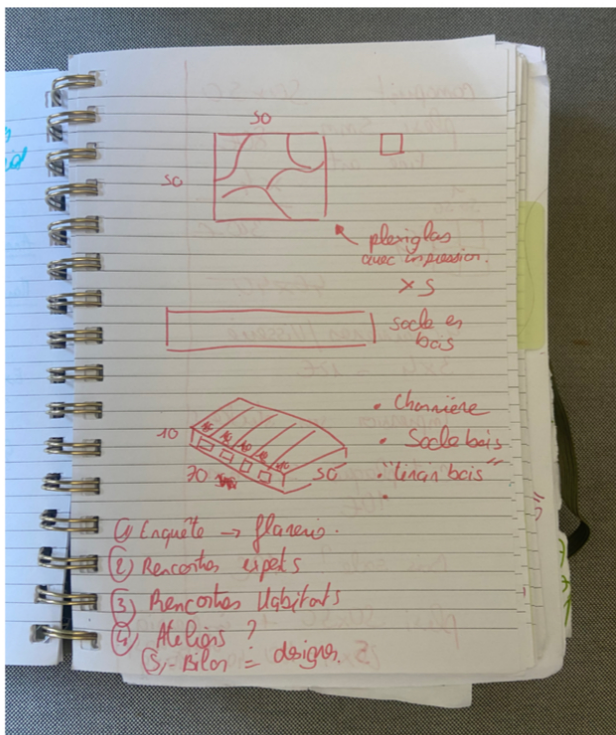 50
50
plexiglas
avec impression.
x 5
socle en
bois
10
10 10 10 10 10
70
50
• Charnière
• Socle bois
• "liran bois"
① Enquête → flanerie.
② Rencontres experts
③ Rencontres Habitants
④ Ateliers ?
5 - Bilan = designer.